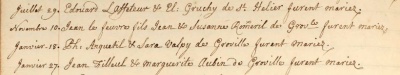 Juillet. 29. Edouard Laffeteur & El: Gruchy de St. Helier furent mariez.
Novembre 10. Jean le feuvre fils Jean & Susanne Romeril de Grov.le furent mariez.
Janvier. 18. Ph: Anquetil & Sara Valpy de Groville furent Mariez.
Janvier 27. Jean Filleul & Marguerite Aubin de Groville furent mariez.